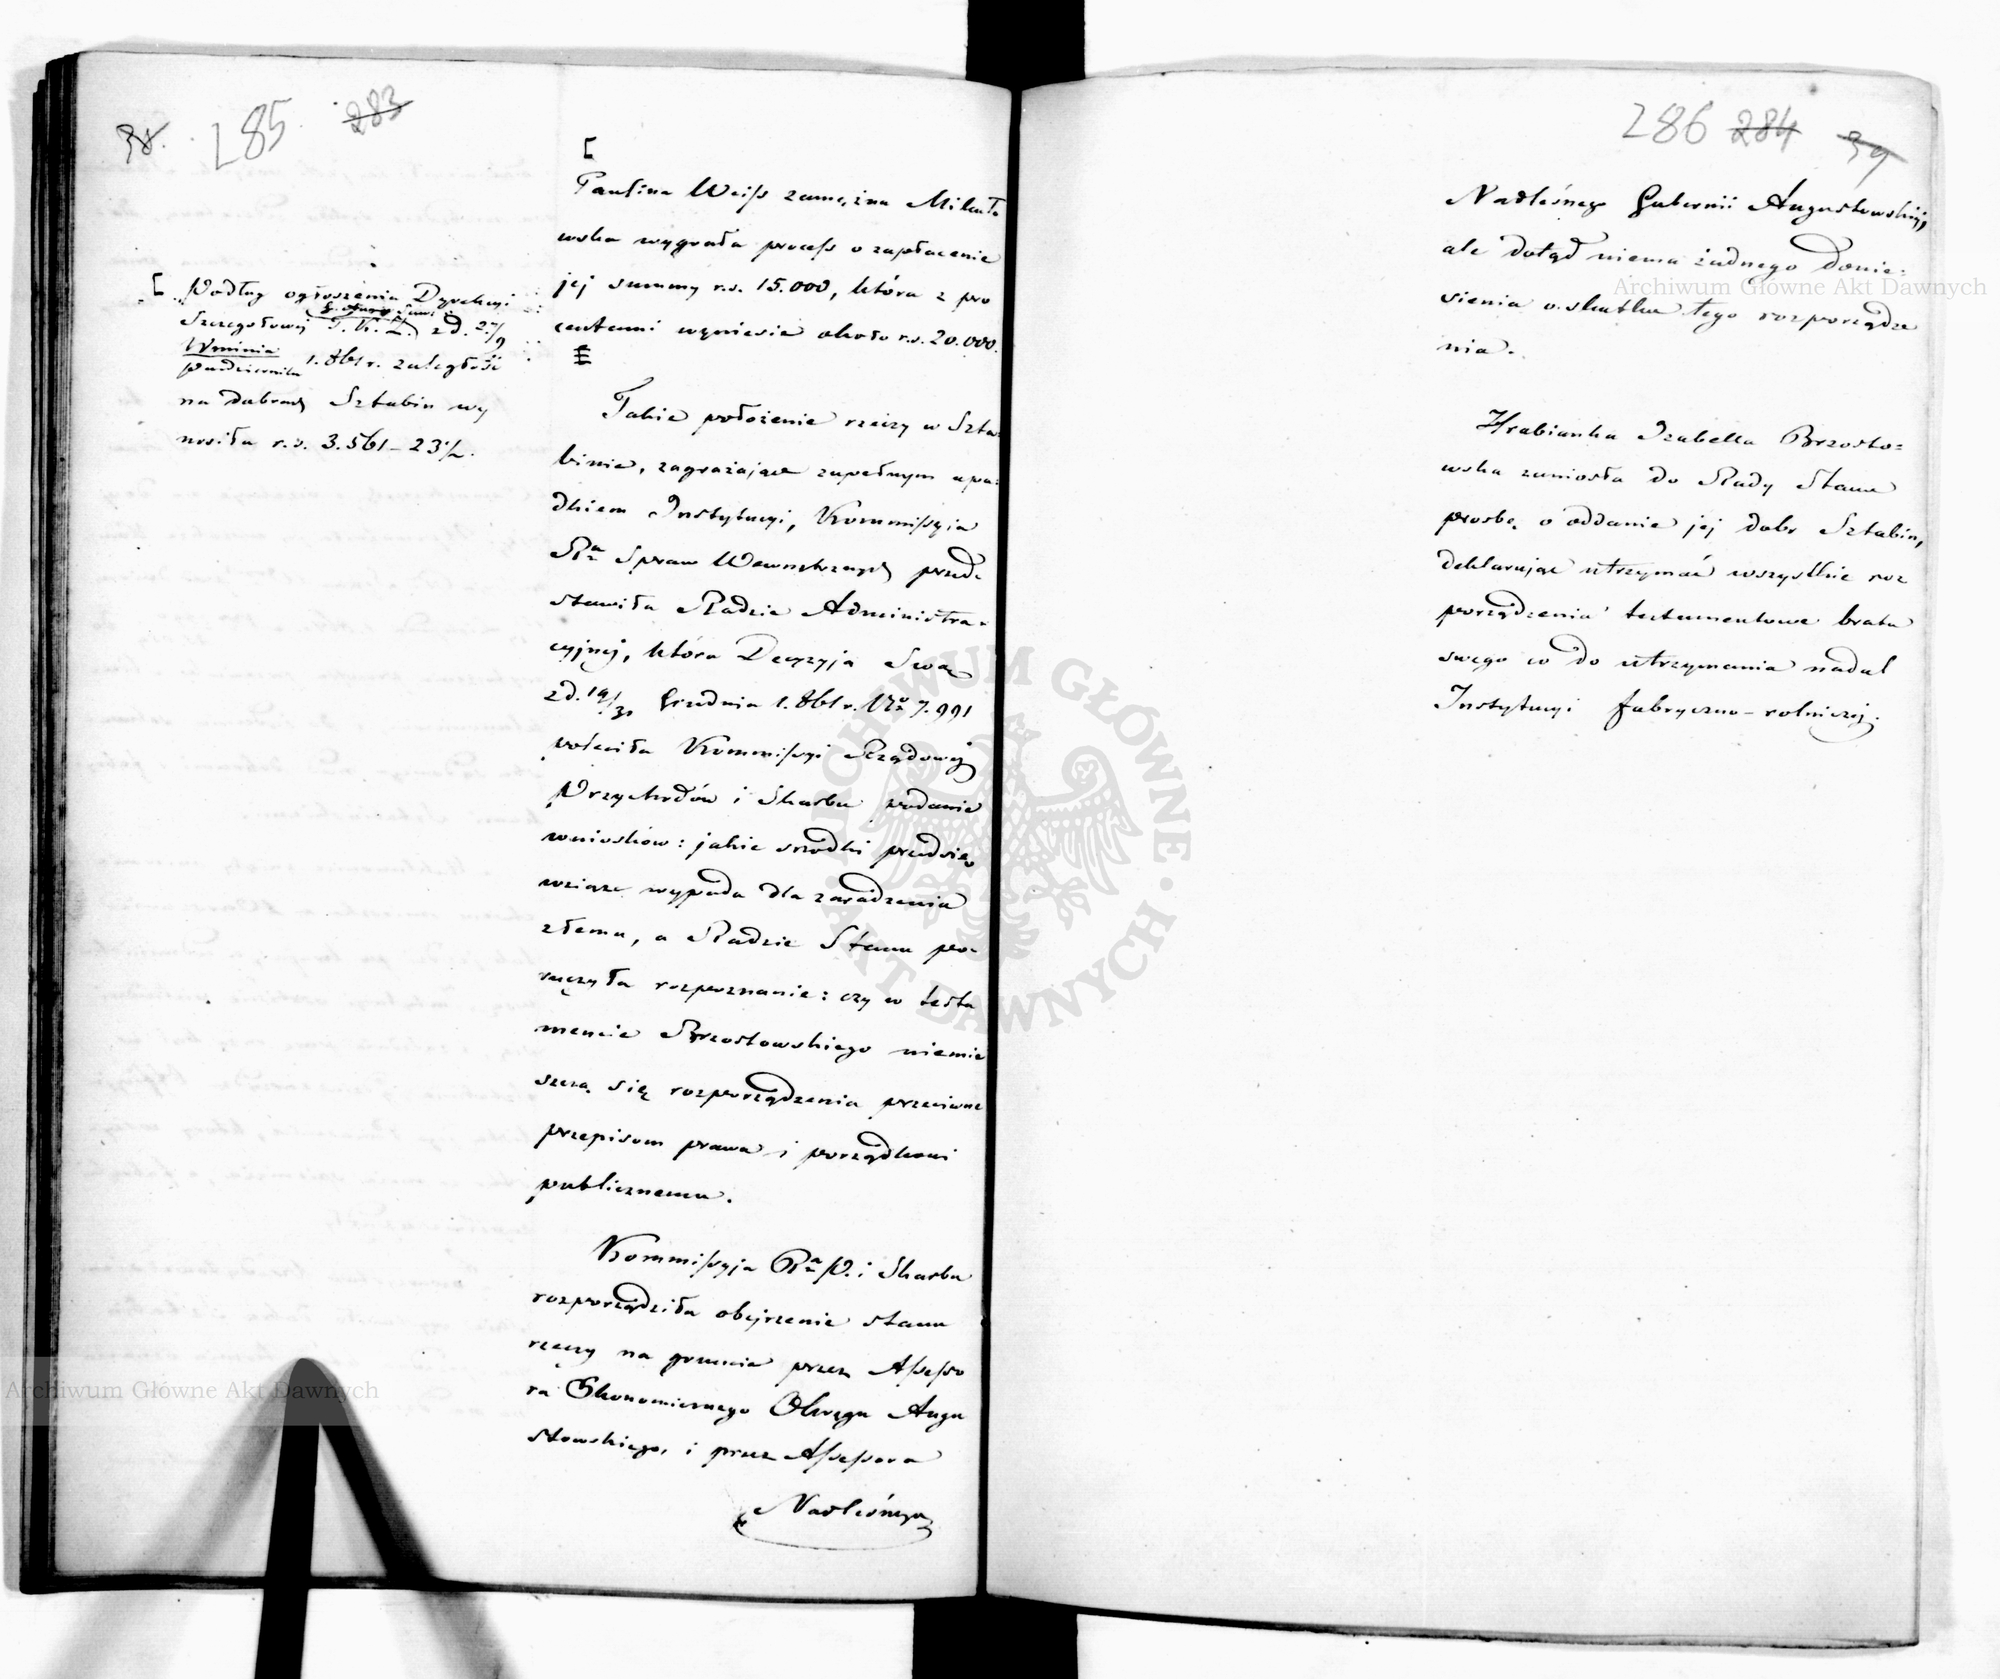 38. 285 283
[
Paulina Weiss zamężna Mikuło
wska wygrała process o zapłacenie
jej summy r.s. 15.000, która z pro
centami wyniesie około r.s. 20.000.
[ Podług ogłoszenia Dyrekcyi
Szczegółowej T. K. Z. z d. 27/9
Września
października 1861 r. zaległość
na dobrach Sztabin wy
nosiła r.s. 3.561 – 23½.
Takie położenie rzeczy w Szta-
binie, zagrażające zupełnym upa-
dkiem Instytucyi, Kommissyia
Ra Spraw Wewnętrznych przed-
stawiła Radzie Administra-
cyjnej, która Decyzyja Swą
z d. 19/31 Grudnia 1861 r. No 7.991
poleciła Kommissyi Rządowej
Przychodów i Skarbu podanie
wniosków: jakie srzodki przedsię
wziąść wypada dla zaradzenia
złemu, a Radzie Stanu po-
ruczyła rozpoznanie: czy w testa
mencie Brzostowskiego niemie
szczą się rozporządzenia przeciwne
przepisom prawa i porządkowi
publicznemu.
Kommissyja Ra P. i Skarbu
rozporządziła obejrzenie stanu
rzeczy na gruncie przez Assesso
ra Ekonomicznego Okręgu Augu
stowskiego, i przez Assessora
Nadleśnego
286 284 39
Nadleśnego Gubernii Augustowskiej,
ale dotąd niema żadnego donie-
sienia o skutku tego rozporządze
nia.
Hrabianka Izabella Brzosto=
wska zaniosła do Rady Stanu
prosbę o oddanie jej dobr Sztabin,
deklarując utrzymać wszystkie roz
porządzenia testamentowe brata
swego co do utrzymania nadal
Instytucyi fabryczno-rolniczej.
Archiwum Główne Akt Dawnych
ARCHIWUM GŁÓWNE AKT DAWNYCH
Archiwum Główne Akt Dawnych